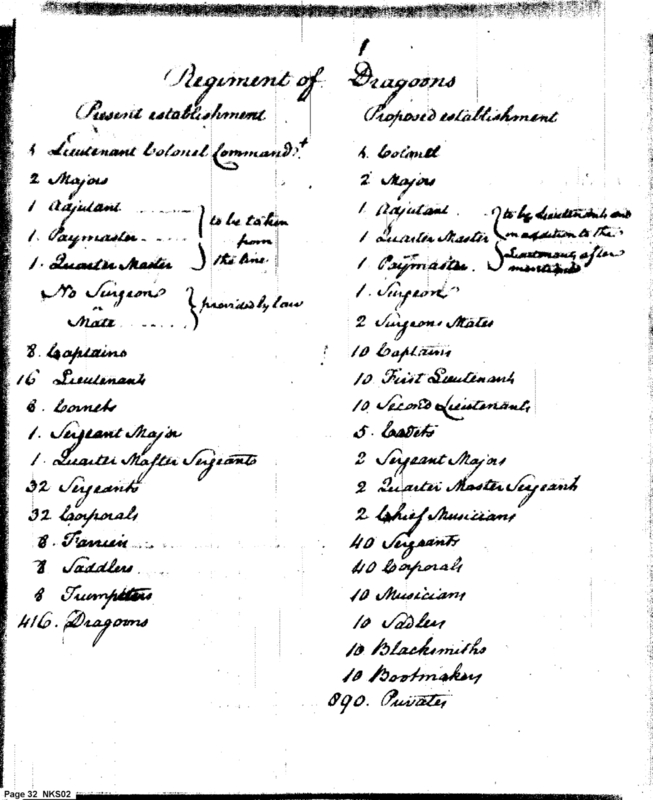 1
Regiment of Dragoons
Present establishment
4 Lieutenant Colonel Command.t +
2 Majors
1 Adjutant
1. Paymaster
1. Quarter Master
to be taken
from
the line
No Surgeon
" Mate
provided by law
8. Captains
16 Lieutenants
8. Cornets
1. Sergeant Major
1. Quarter Master Sergeants
32 Sergeants
32 Corporals
8. Farriers
8 Saddlers
8 Trumpeters
416. Dragoons
Proposed establishment
Colonel
2 Majors
1. Adjutant
1 Quarter Master
1. Paymaster.
to be Lieutenants and
in addition to the
Lieutenants after
mentioned
1. Surgeon
2 Surgeons Mates
10 Captains
10. First Lieutenants
10 Second Lieutenants
5. Cadets
2 Sergeant Majors
2 Quarter Master Sergeants
2 Chief Musicians
40 Sergeants
40 Corporals
10 Musicians
10 Sadlers
10 Blacksmiths
10 Bootmakers
890. Privates
Page 32 NKS02